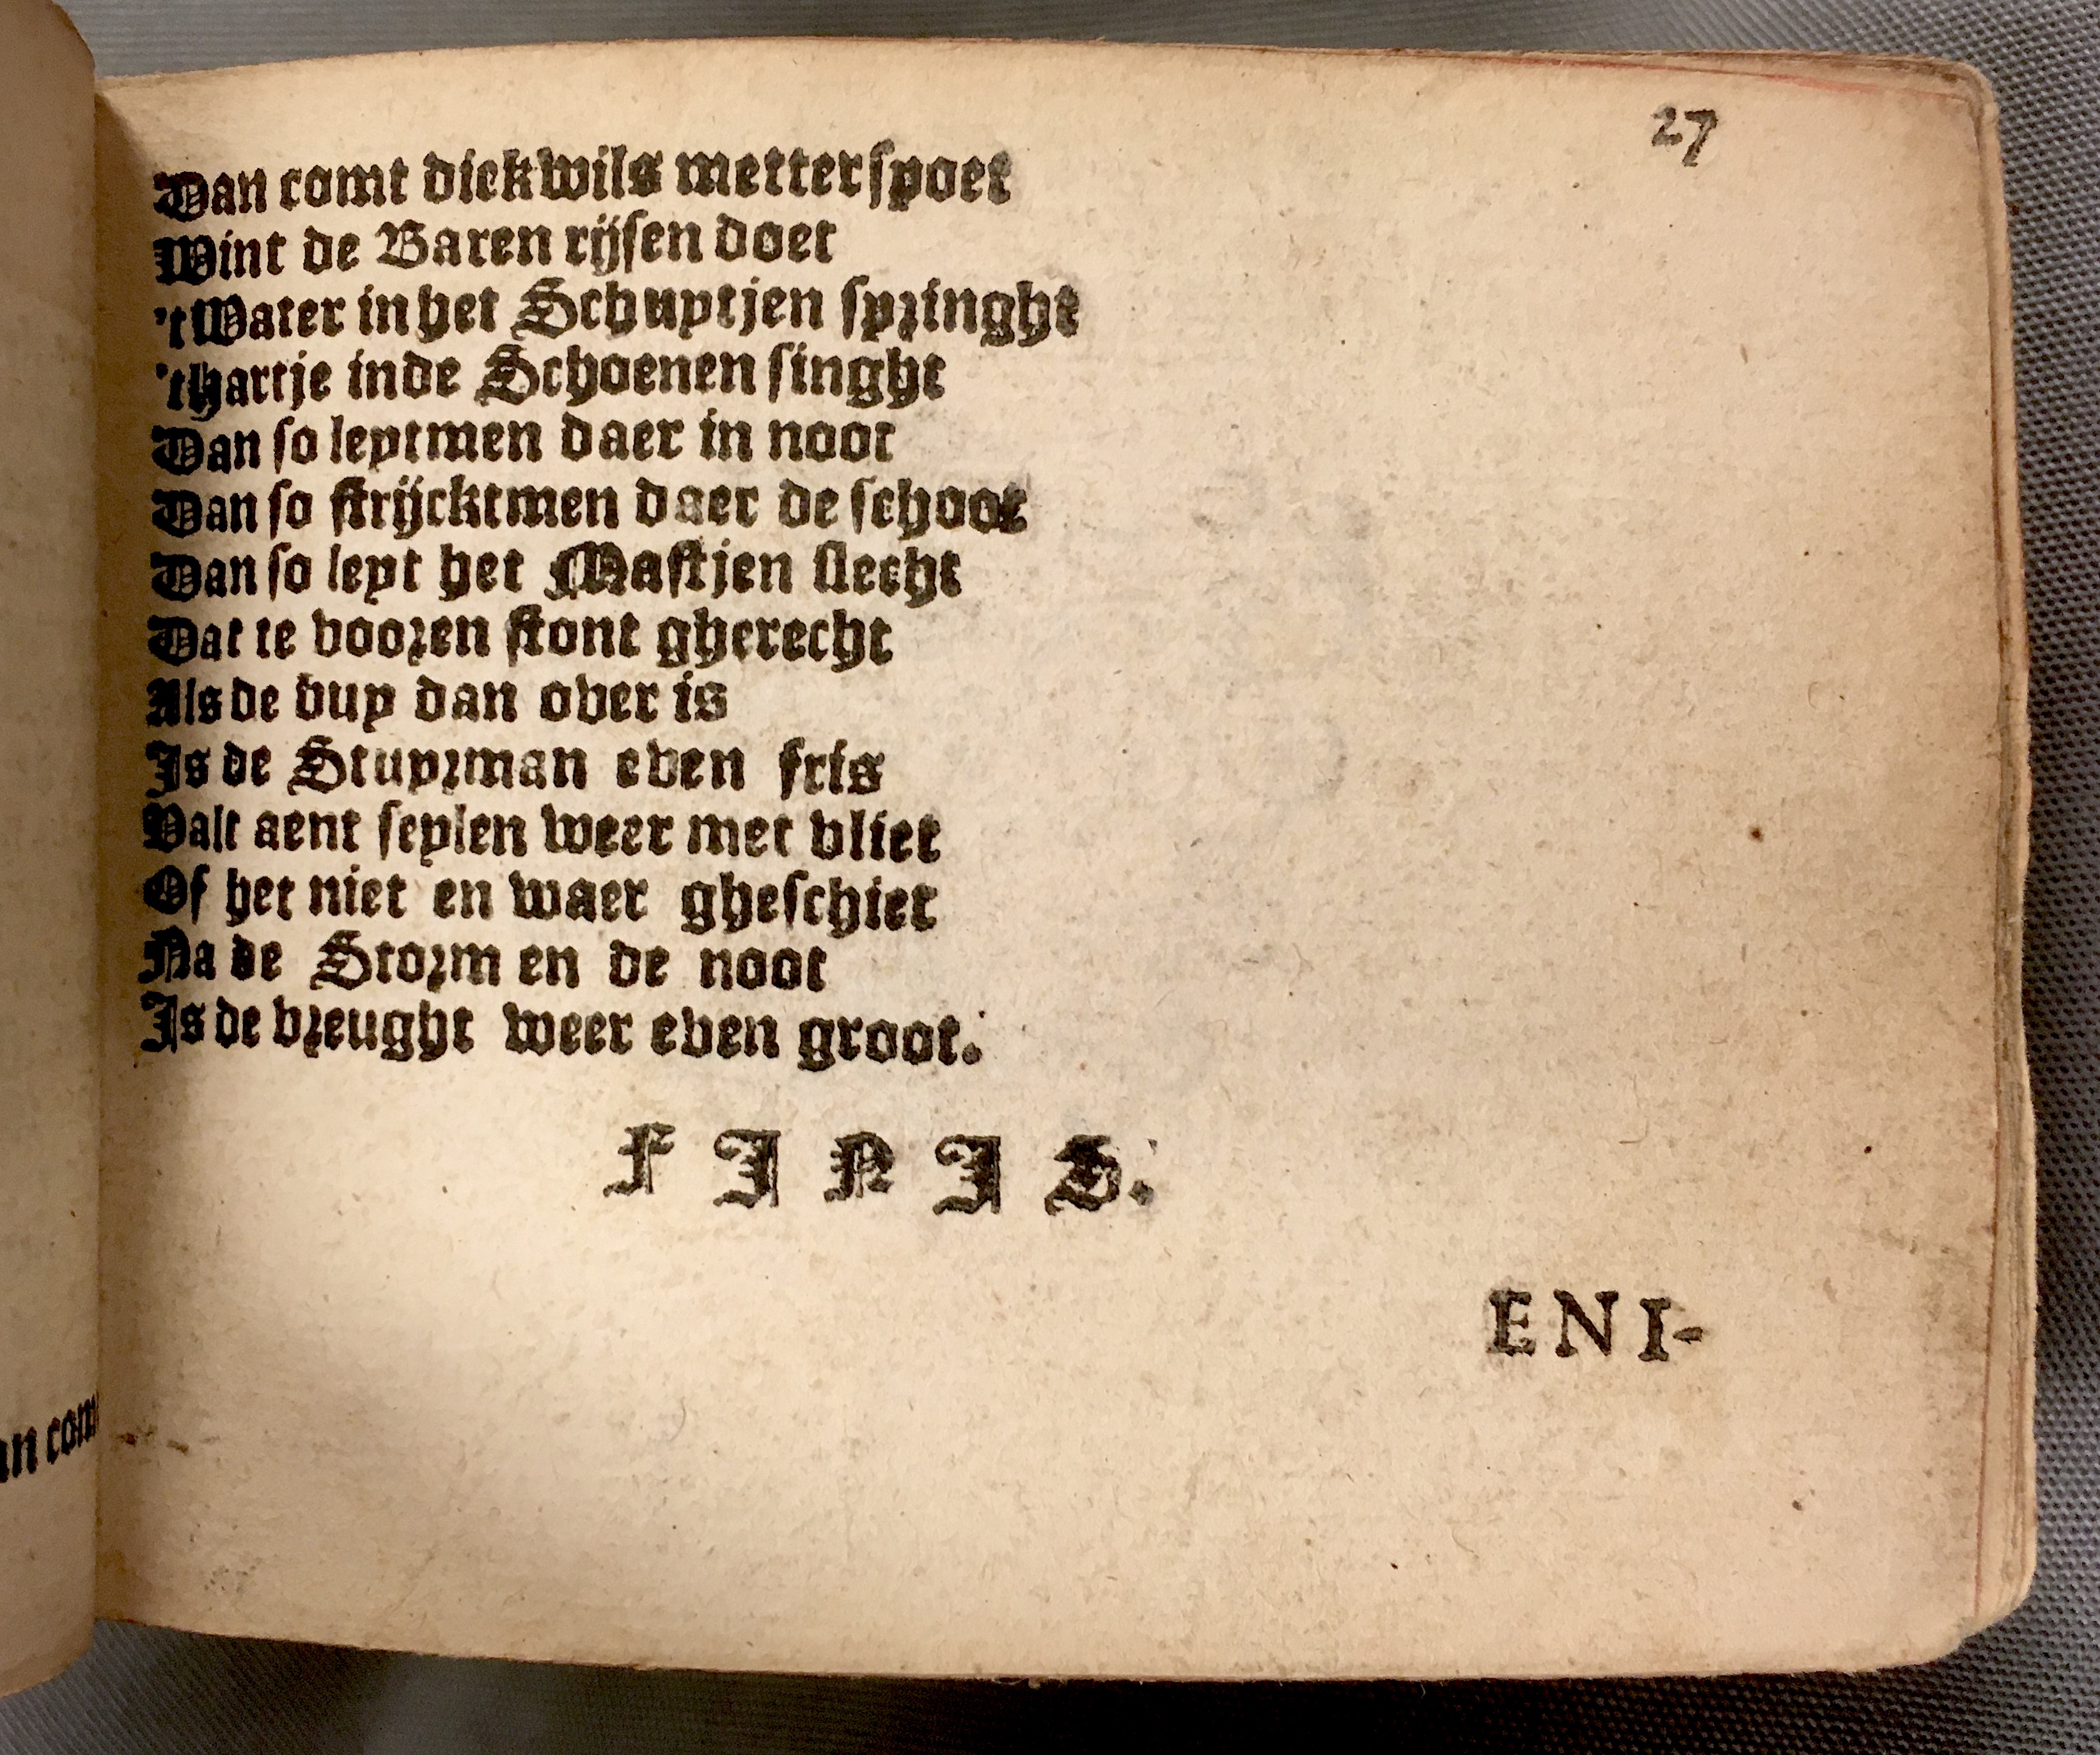 27
Dan comt dickwils metterspoet
Wint de Baren rijsen doet
't Water in het Schuytjen springht
't hartje inde Schoenen singht
Dan so leytmen daer in noot
Dan so strijcktmen daer de schoot
Dan so leyt het Mastjen slecht
Dat te vooren stont gherecht
Als de buy dan over is
Is de Stuyrman even fris
Valt aent seylen weer met vliet
Of het niet en waer gheschiet
Na de Storm en de noot
Is de vreught weer even groot.
FINIS.
ENI-
an com